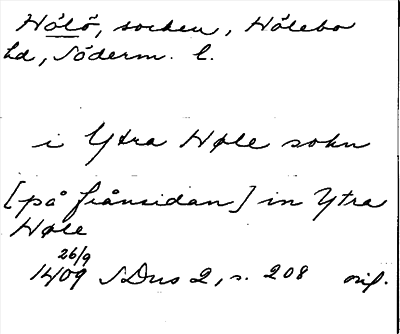 Hölö, socken, Hölebo
hd, Söderm. l.
i Ytra Høle sokn
[på frånsidan] in Ytra
Høle
26/9
1409 SDns 2, s. 208 orig.